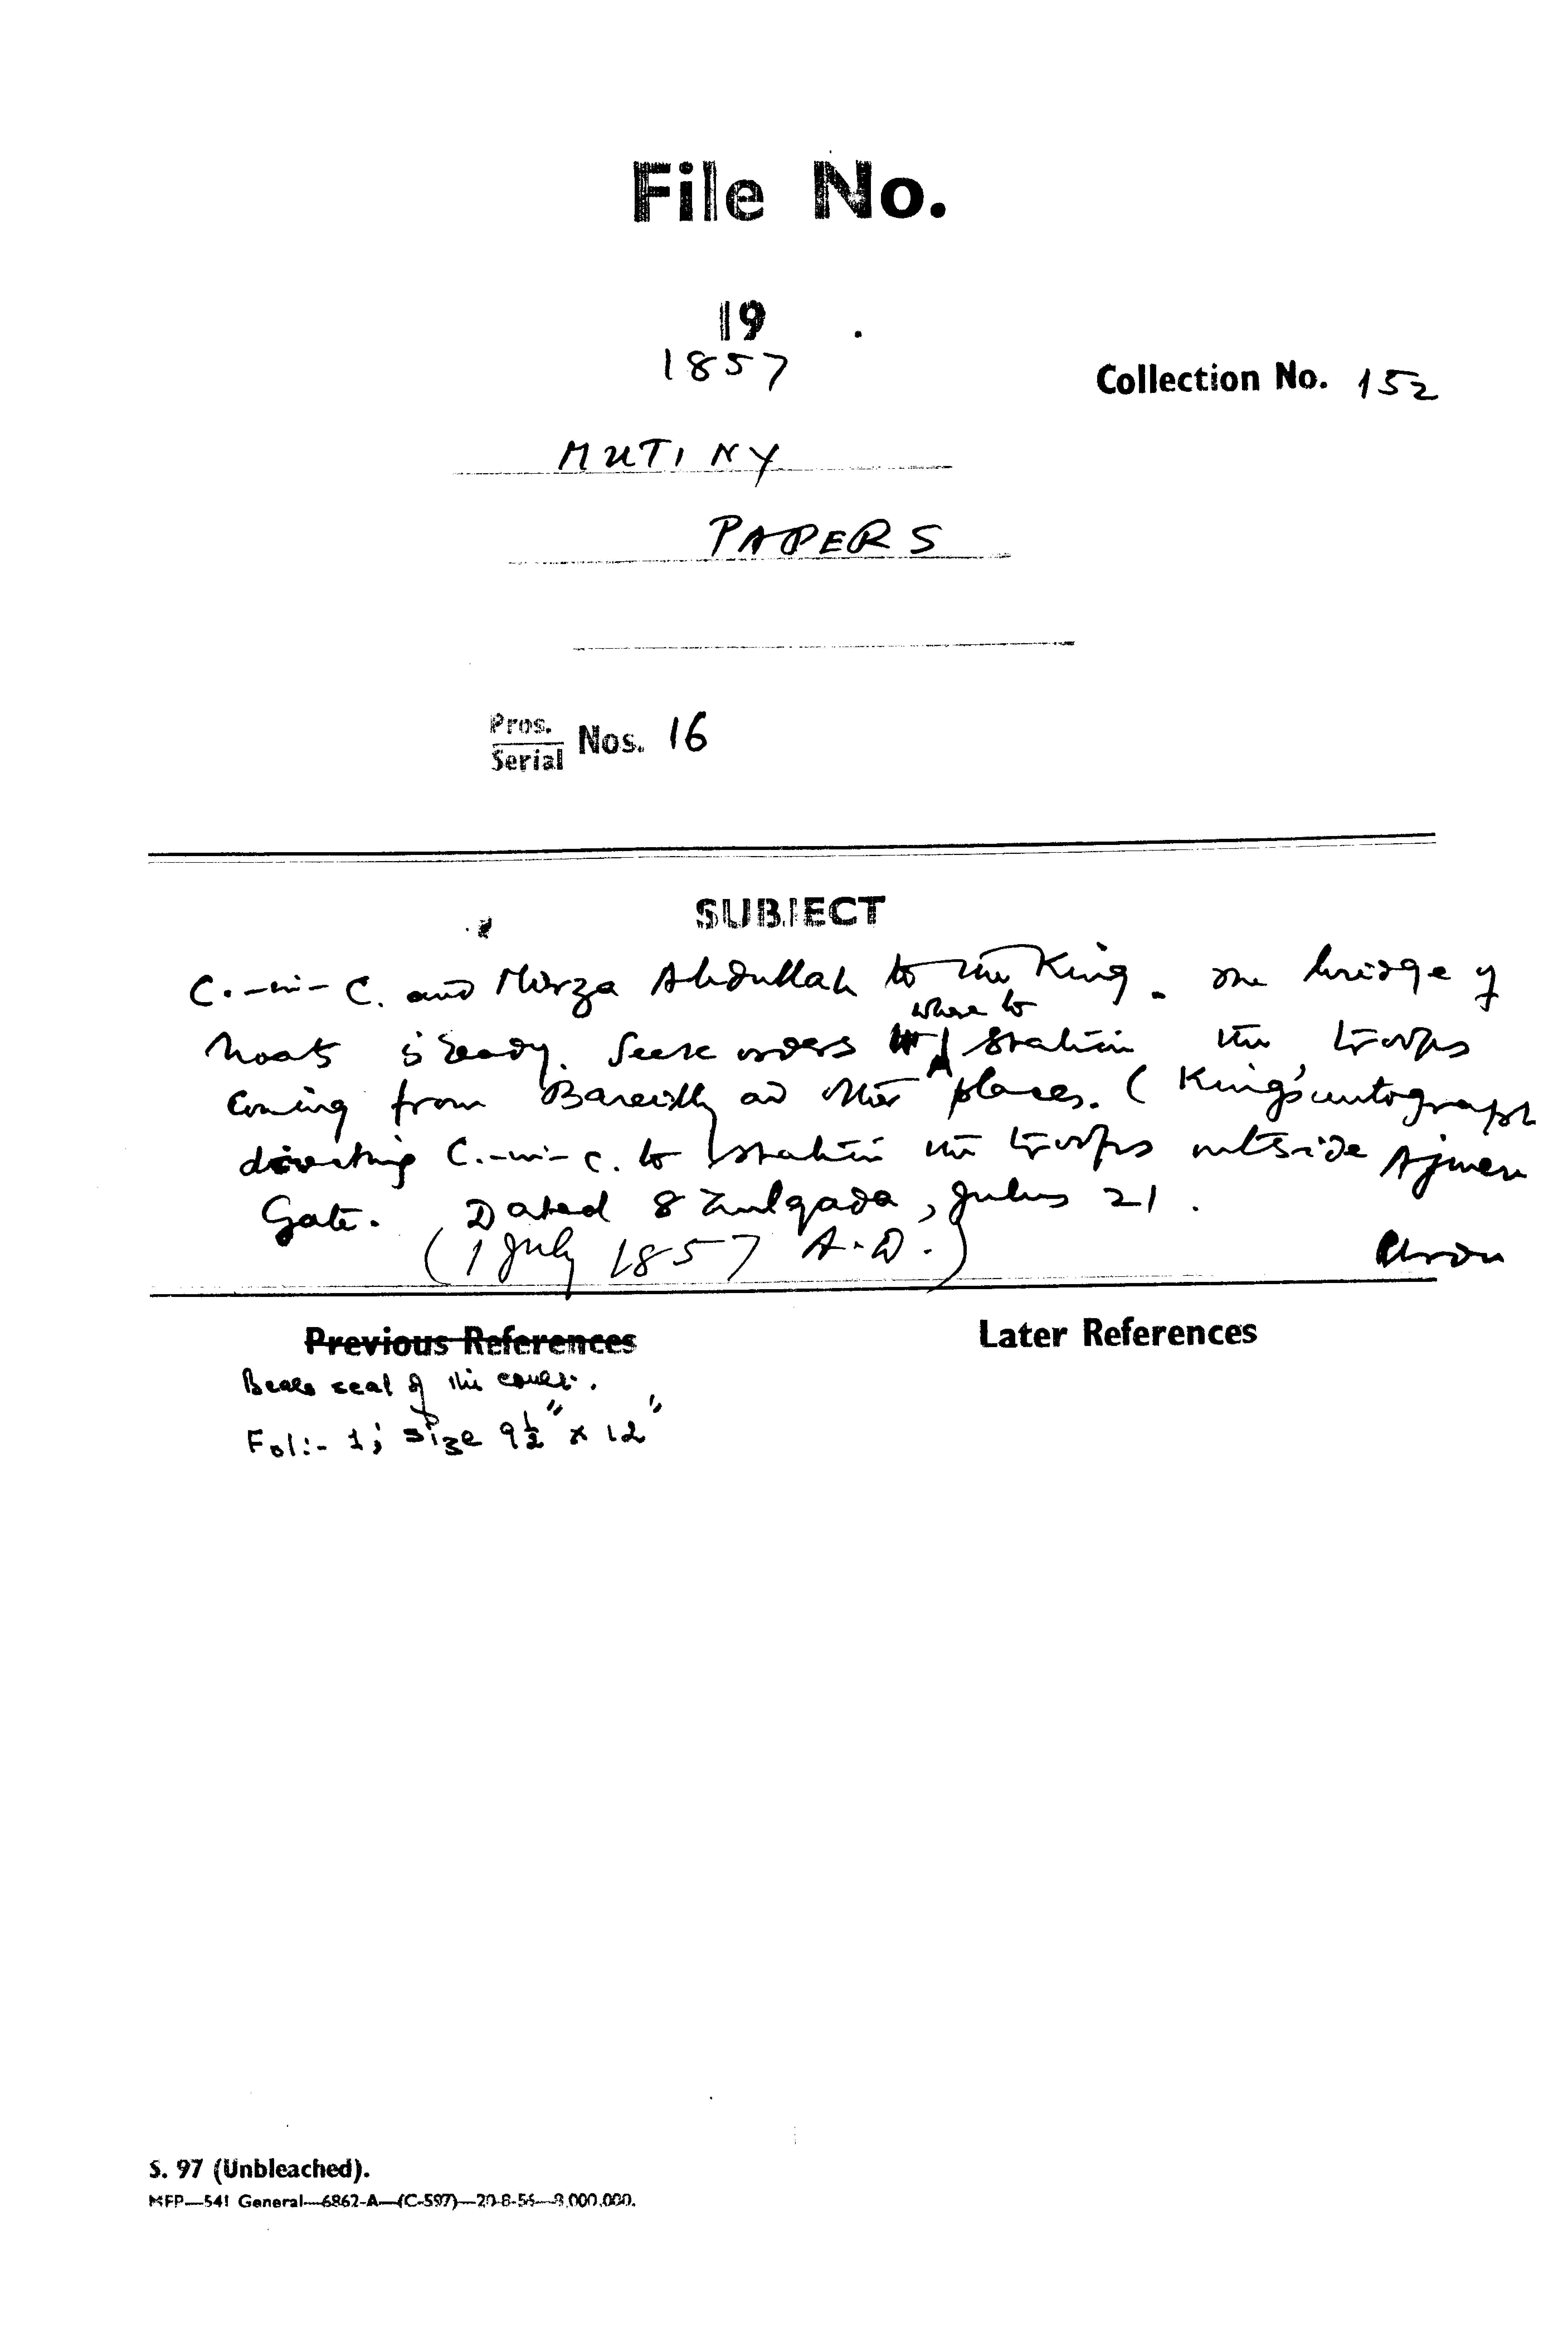 File No.
19
1857
Collection No. 152
MUTINY
PAPERS
Pros.
Serial Nos. 16
SUBJECT
C.-in-C. and Mirza Abdullah to the King. The bridge of
where to
boats is ready. Seek orders station the troops
coming from Bareilly and other places. (King's autograph
directing C.-in-C. to station the troops outside Ajmeri
Gate. Dated 8 Zulqada, Julus 21.
(1 July 1857 A.D.)
Urdu
Previous References
Later References
Bears seal of the court.
Fol:- 1; size 9½" x 12"
S. 97 (Unbleached).
MFP—541 General—6862-A—(C-597)—20-8-56—8,000,000.